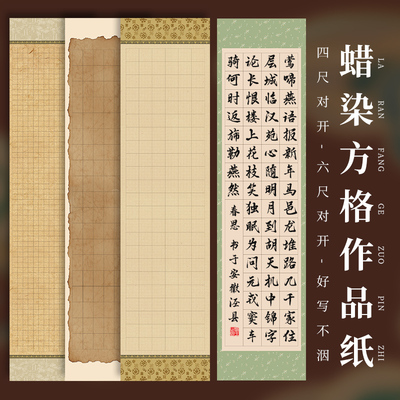 蜡染方格作品纸
LA RAN FANG GE ZUO PIN ZHI
四尺对开-六尺对开-好写不洇
莺啼燕语报新年马邑龙堆路几千家住
层城临汉苑心随明月到胡天机中锦字
论长恨楼上花枝笑独眠为问元戎窦车
骑何时返旆勒燕然 春思 书于安徽泾县